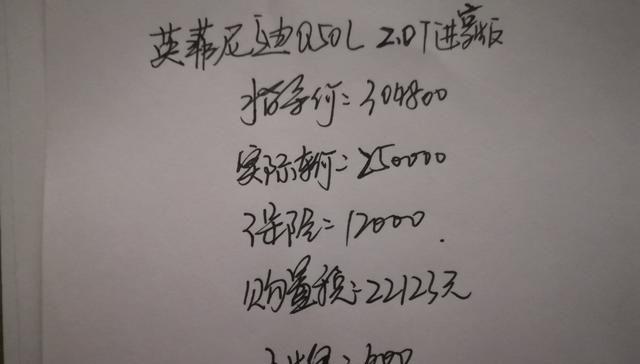 英菲尼迪Q50L 2.0T进享版
指导价=304800
实际车价=250000
保险=12000.
购置税=22123元